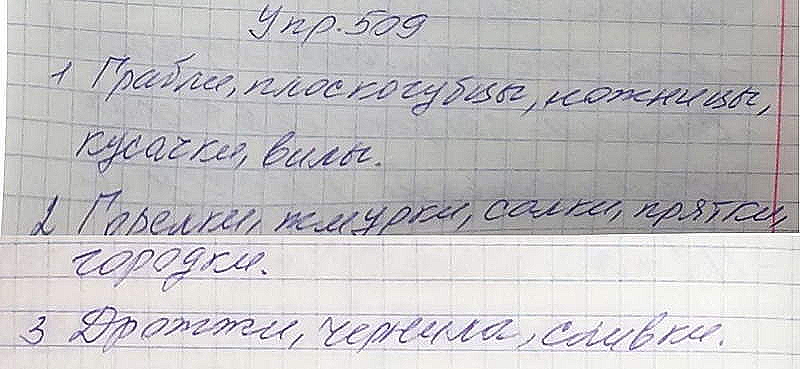 Упр. 509
1 Грабли, плоскогубцы, ножницы,
кусачки, вилы.
2 Горелки, жмурки, салки, прятки,
городки.
3 Дрожжи, чернила, сливки.